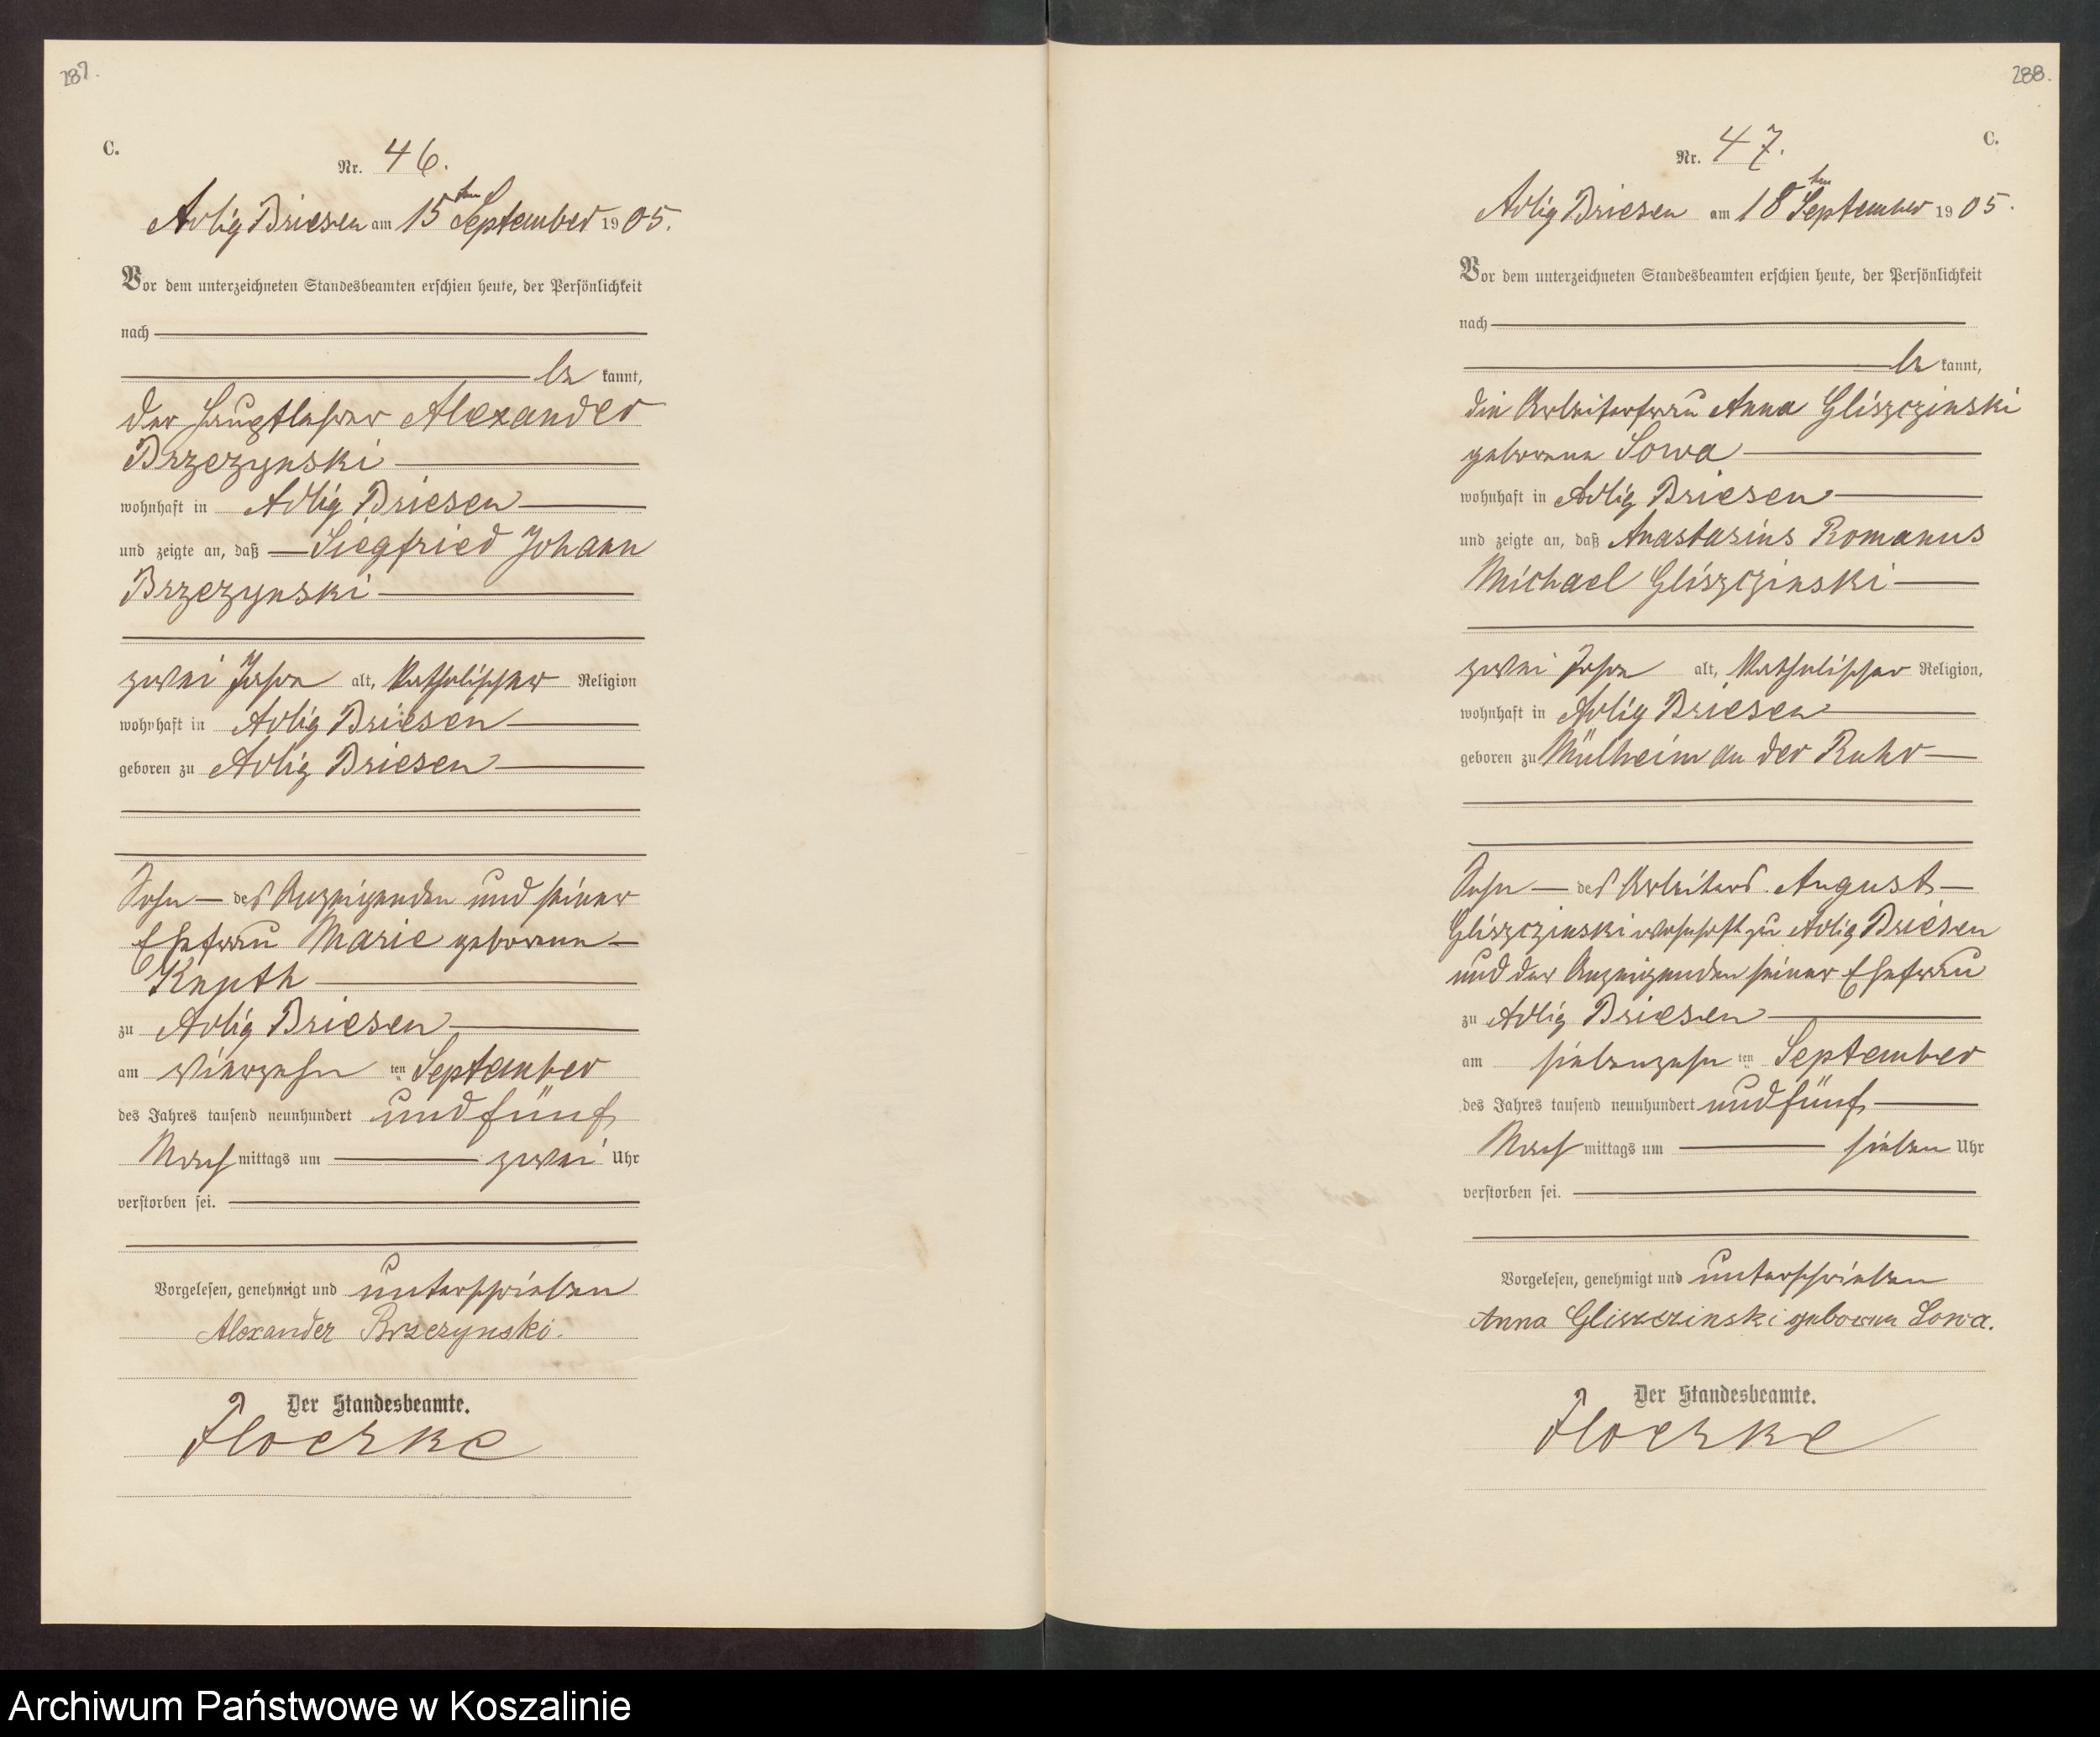 287.
C.
Nr. 46.
Adlig Briesen am 15ten September 1905.
Vor dem unterzeichneten Standesbeamten erschien heute, der Persönlichkeit
nach
be kannt,
der Hauptlehrer Alexander
Brzezynski
wohnhaft in Adlig Briesen
und zeigte an, daß Siegfried Johann
Brzezynski
zwei Jahre alt, katholischer Religion
wohnhaft in Adlig Briesen
geboren zu Adlig Briesen
Sohn des Anzeigenden und seiner
Ehefrau Marie geborene
Knuth
zu Adlig Briesen
am vierzehn ten September
des Jahres tausend neunhundert und fünf
Nach mittags um zwei Uhr
verstorben sei.
Vorgelesen, genehmigt und unterschrieben
Alexander Brzezynski.
Der Standesbeamte.
Floerke
288.
C.
Nr. 47.
Adlig Briesen am 18ten September 1905.
Vor dem unterzeichneten Standesbeamten erschien heute, der Persönlichkeit
nach
be kannt,
die Arbeiterfrau Anna Gliszczinski
geborene Sowa
wohnhaft in Adlig Briesen
und zeigte an, daß Anastasius Romanus
Michael Gliszczinski
zwei Jahre alt, katholischer Religion,
wohnhaft in Adlig Briesen
geboren zu Mülheim an der Ruhr
Sohn des Arbeiters August
Gliszczinski wohnhaft zu Adlig Briesen
und der Anzeigenden seiner Ehefrau
zu Adlig Briesen
am siebenzehn ten September
des Jahres tausend neunhundert und fünf
Nach mittags um sieben Uhr
verstorben sei.
Vorgelesen, genehmigt und unterschrieben
Anna Gliszczinski geborene Sowa.
Der Standesbeamte.
Floerke
Archiwum Państwowe w Koszalinie